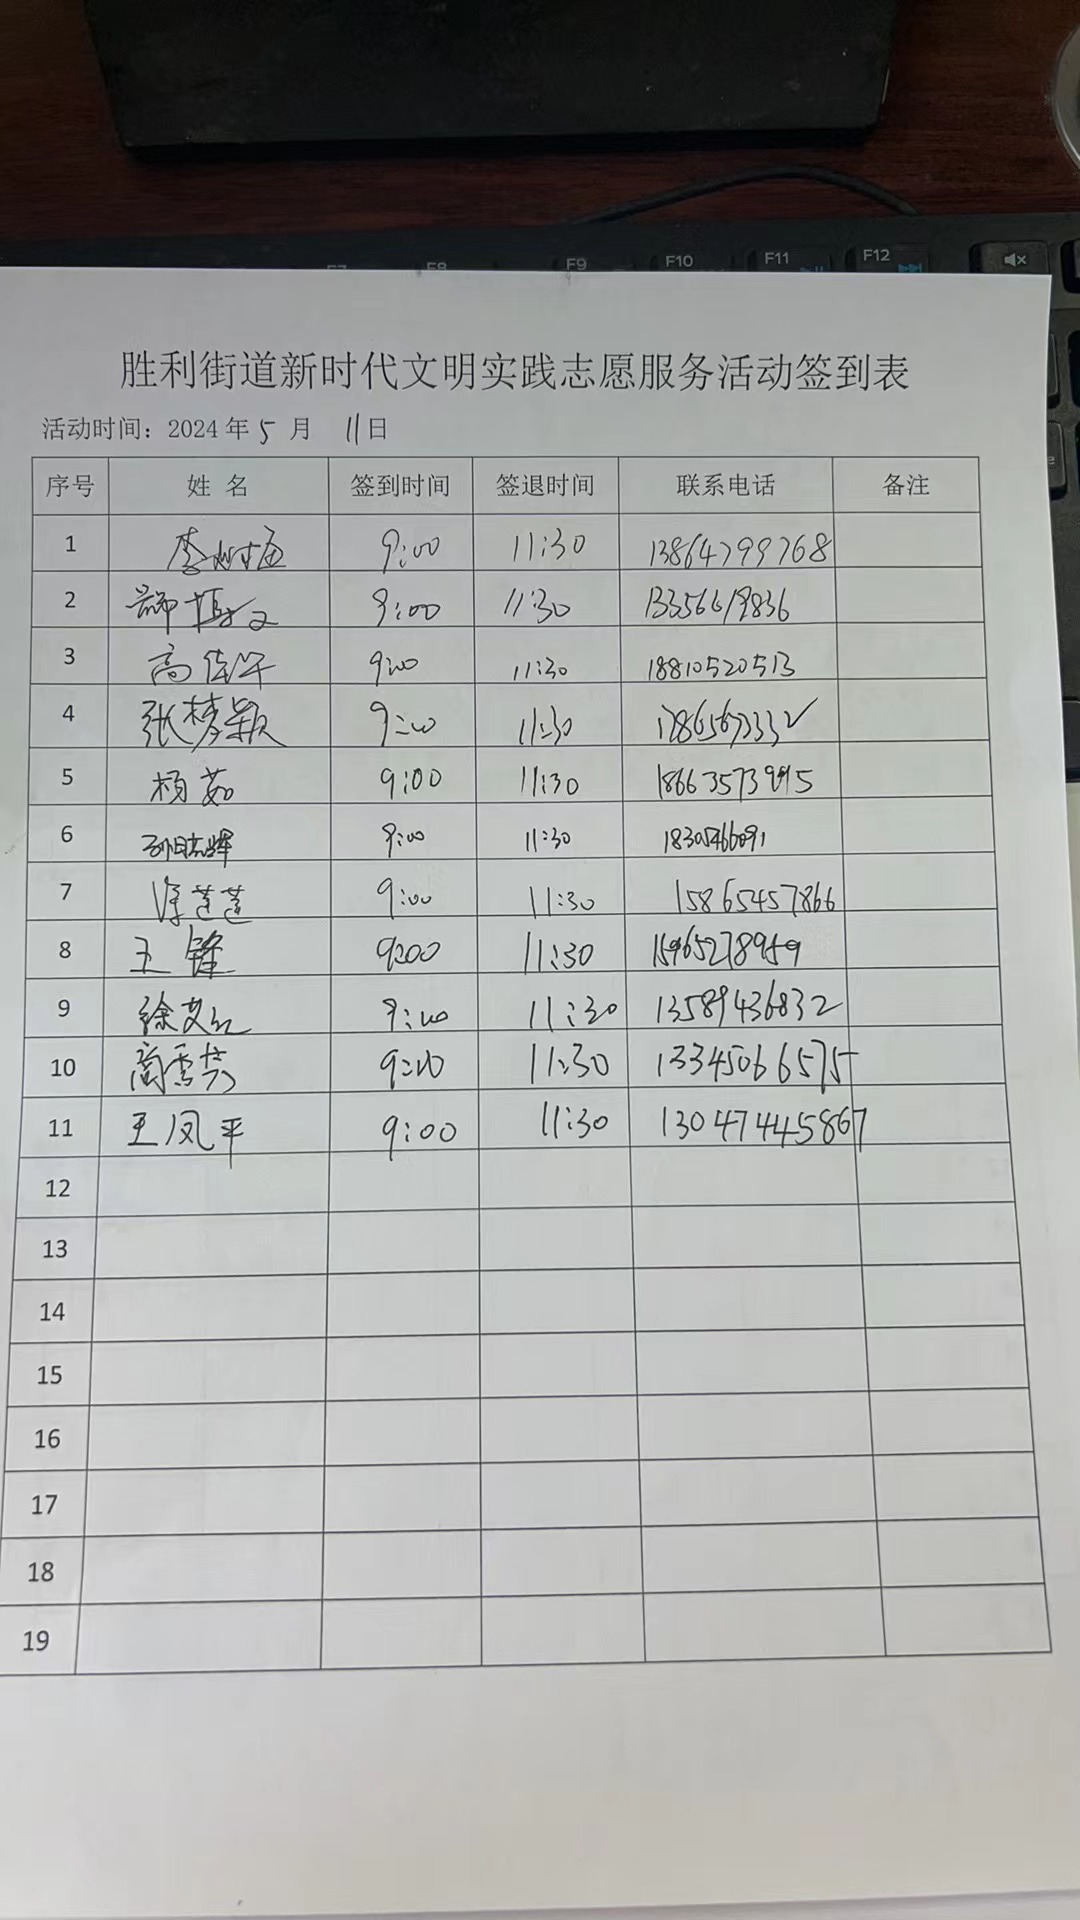 F8 F9 F10 F11 F12
胜利街道新时代文明实践志愿服务活动签到表
活动时间：2024年5月 11日
序号 姓 名 签到时间 签退时间 联系电话 备注
1 李 9:00 11:30 13864799768
2 9:00 11:30 13356619836
3 高佳 9:00 11:30 18810520513
4 张梦颖 9:00 11:30
5 杨茹 9:00 11:30
6 9:00 11:30
7 莲莲 9:00 11:30 15865457866
8 王锋 9:00 11:30 15965278959
9 徐艾红 9:00 11:30 13589436832
10 商雪芬 9:00 11:30 13345066575
11 王凤平 9:00 11:30 13047445867
12
13
14
15
16
17
18
19